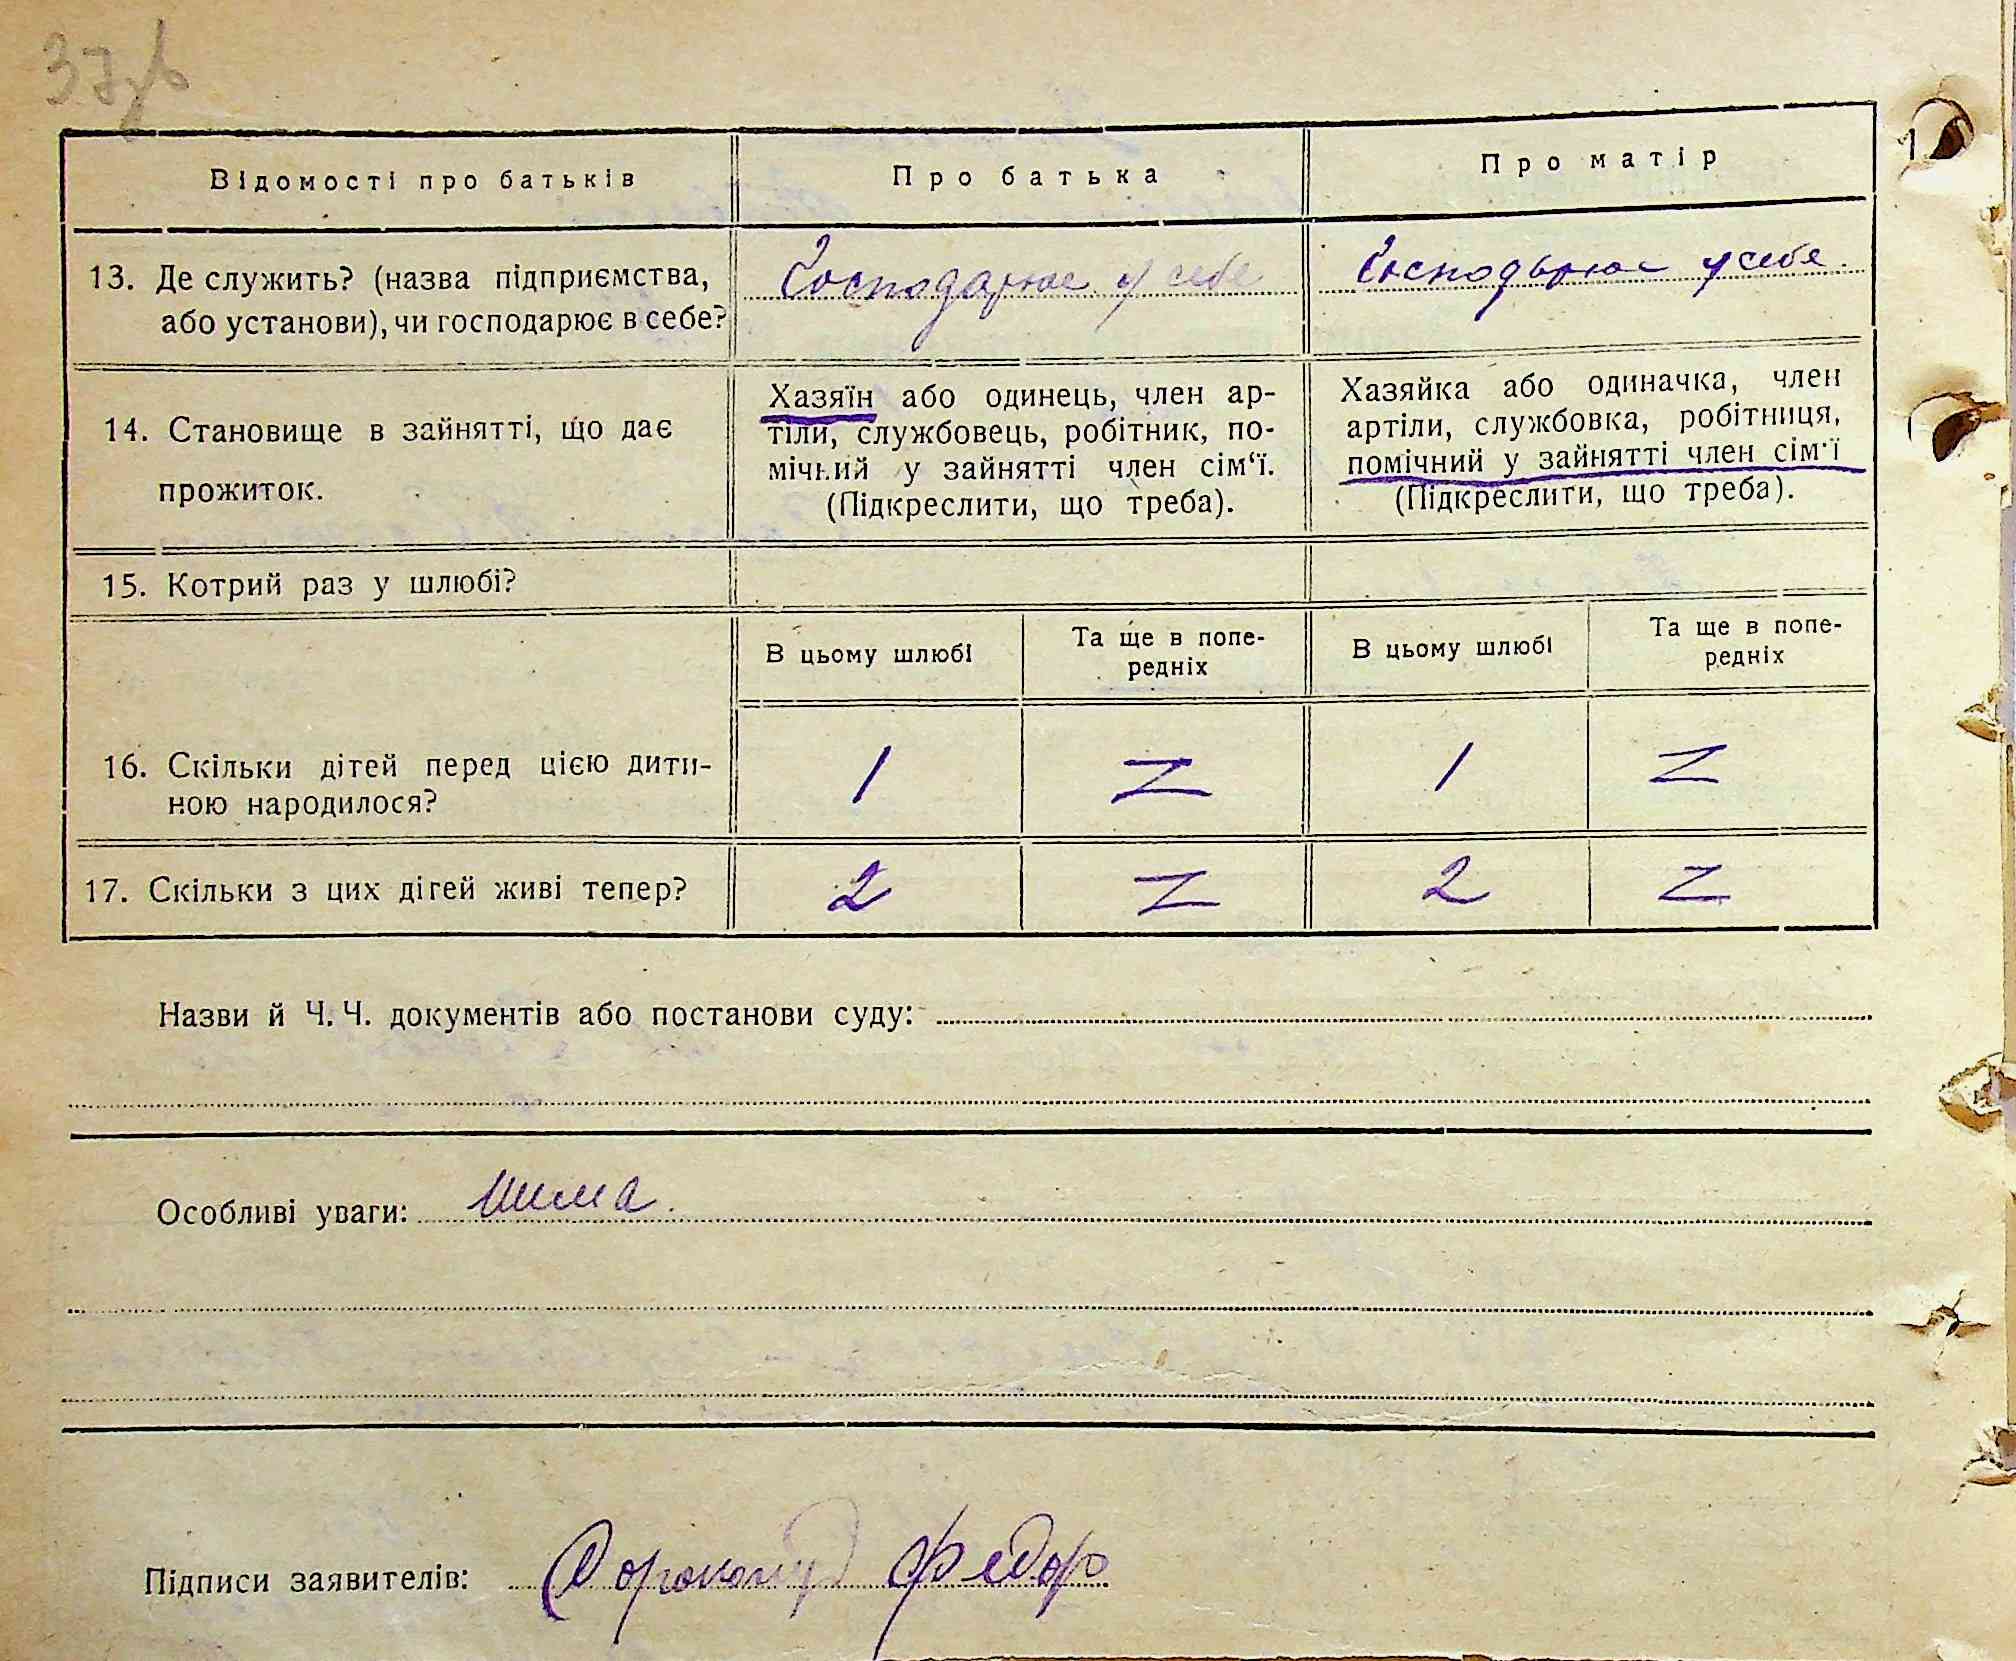 37 зв
Відомості про батьків
Про батька
Про матір
13. Де служить? (назва підприємства, або установи), чи господарює в себе?
Господарює у себе
Господарює у себе.
14. Становище в зайнятті, що дає прожиток.
Хазяїн або одинець, член ар-
тіли, службовець, робітник, по-
мічний у зайнятті член сім‘ї.
(Підкреслити, що треба).
Хазяйка або одиначка, член
артіли, службовка, робітниця,
помічний у зайнятті член сім‘ї
(Підкреслити, що треба).
15. Котрий раз у шлюбі?
В цьому шлюбі
Та ще в попе-
редніх
В цьому шлюбі
Та ще в попе-
редніх
16. Скільки дітей перед цією дити-
ною народилося?
1
1
17. Скільки з цих дітей живі тепер?
2
2
Назви й Ч. Ч. документів або постанови суду:
Особливі уваги: нима.
Підписи заявителів: Федор